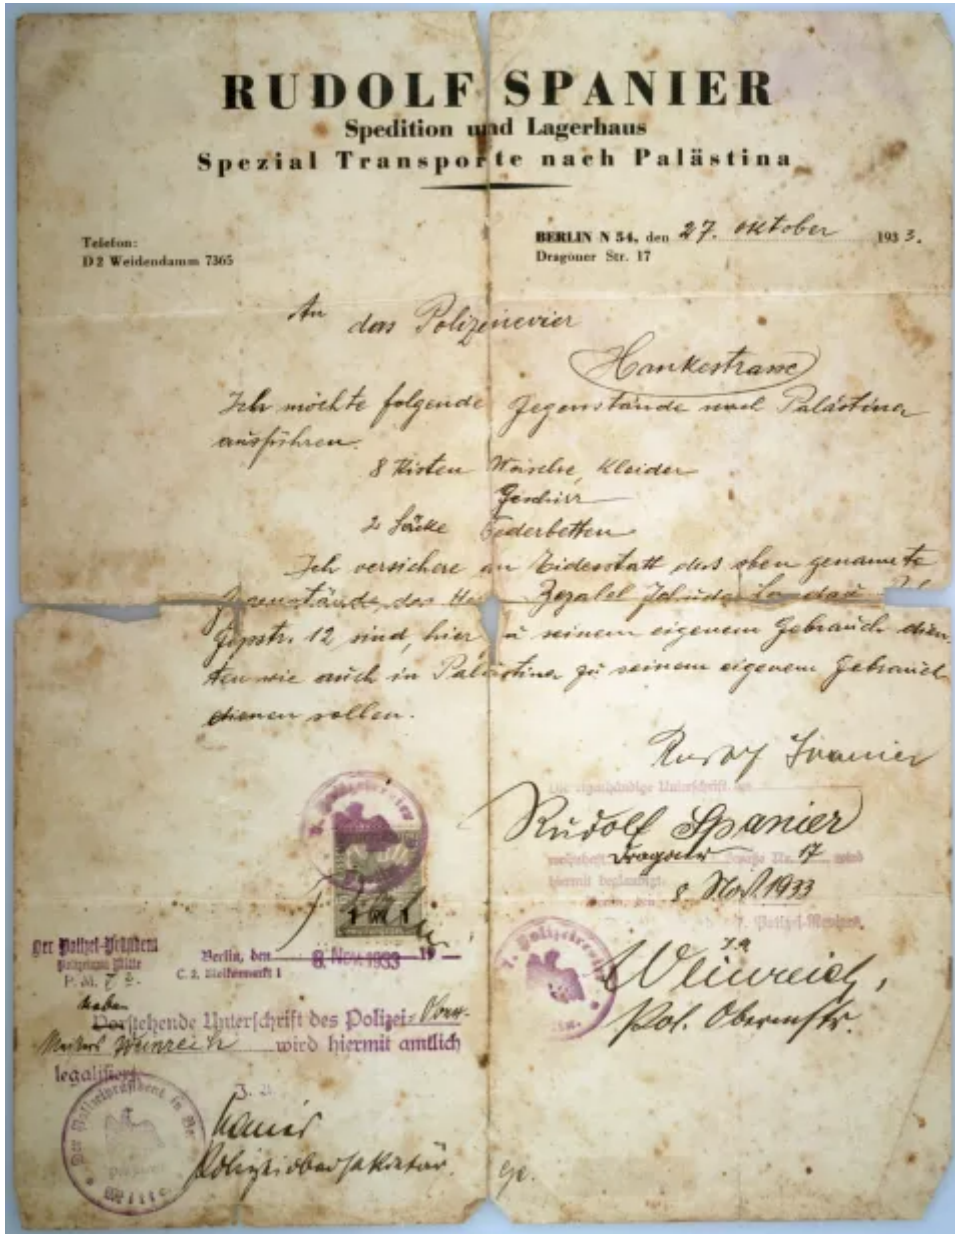 RUDOLF SPANIER
Spedition und Lagerhaus
Spezial Transporte nach Palästina
Telefon:
D2 Weidendamm 7365
BERLIN N 54, den 27. Oktober 1933.
Dragoner Str. 17
An das Polizeirevier
Hankestrasse
Ich möchte folgende Gegenstände nach Palästina
ausführen.
8 Kisten Wäsche, Kleider
Geschirr
2 Säcke Federbetten
Ich versichere an Eidesstatt das oben genannte
Gegenstände des Bezalel Jehuda Landau
Gipsstr. 12 sind, hier zu seinem eigenem Gebrauch dien-
ten wie auch in Palästina zu seinem eigenem Gebrauch
dienen sollen.
Rudolf Spanier
Die eigenhändige Unterschrift des
Rudolf Spanier
wohnhaft Dragoner Straße Nr. 17 wird
hiermit beglaubigt.
Berlin, den 8 Nov. 1933
7. Polizei-Revier.
I.A.
Weinreich,
Pol. Obermstr.
7. Polizeirevier
Der Polizei-Präsident
Polizeiamt Mitte
P. M.
Berlin, den 8. Nov. 1933 19
C. 2,
Vorstehende Unterschrift des Polizei-Ober-
Meisters Weinreich wird hiermit amtlich
legalisiert.
I. A.
Polizeiobersekretär.
Der Polizeipräsident in Be